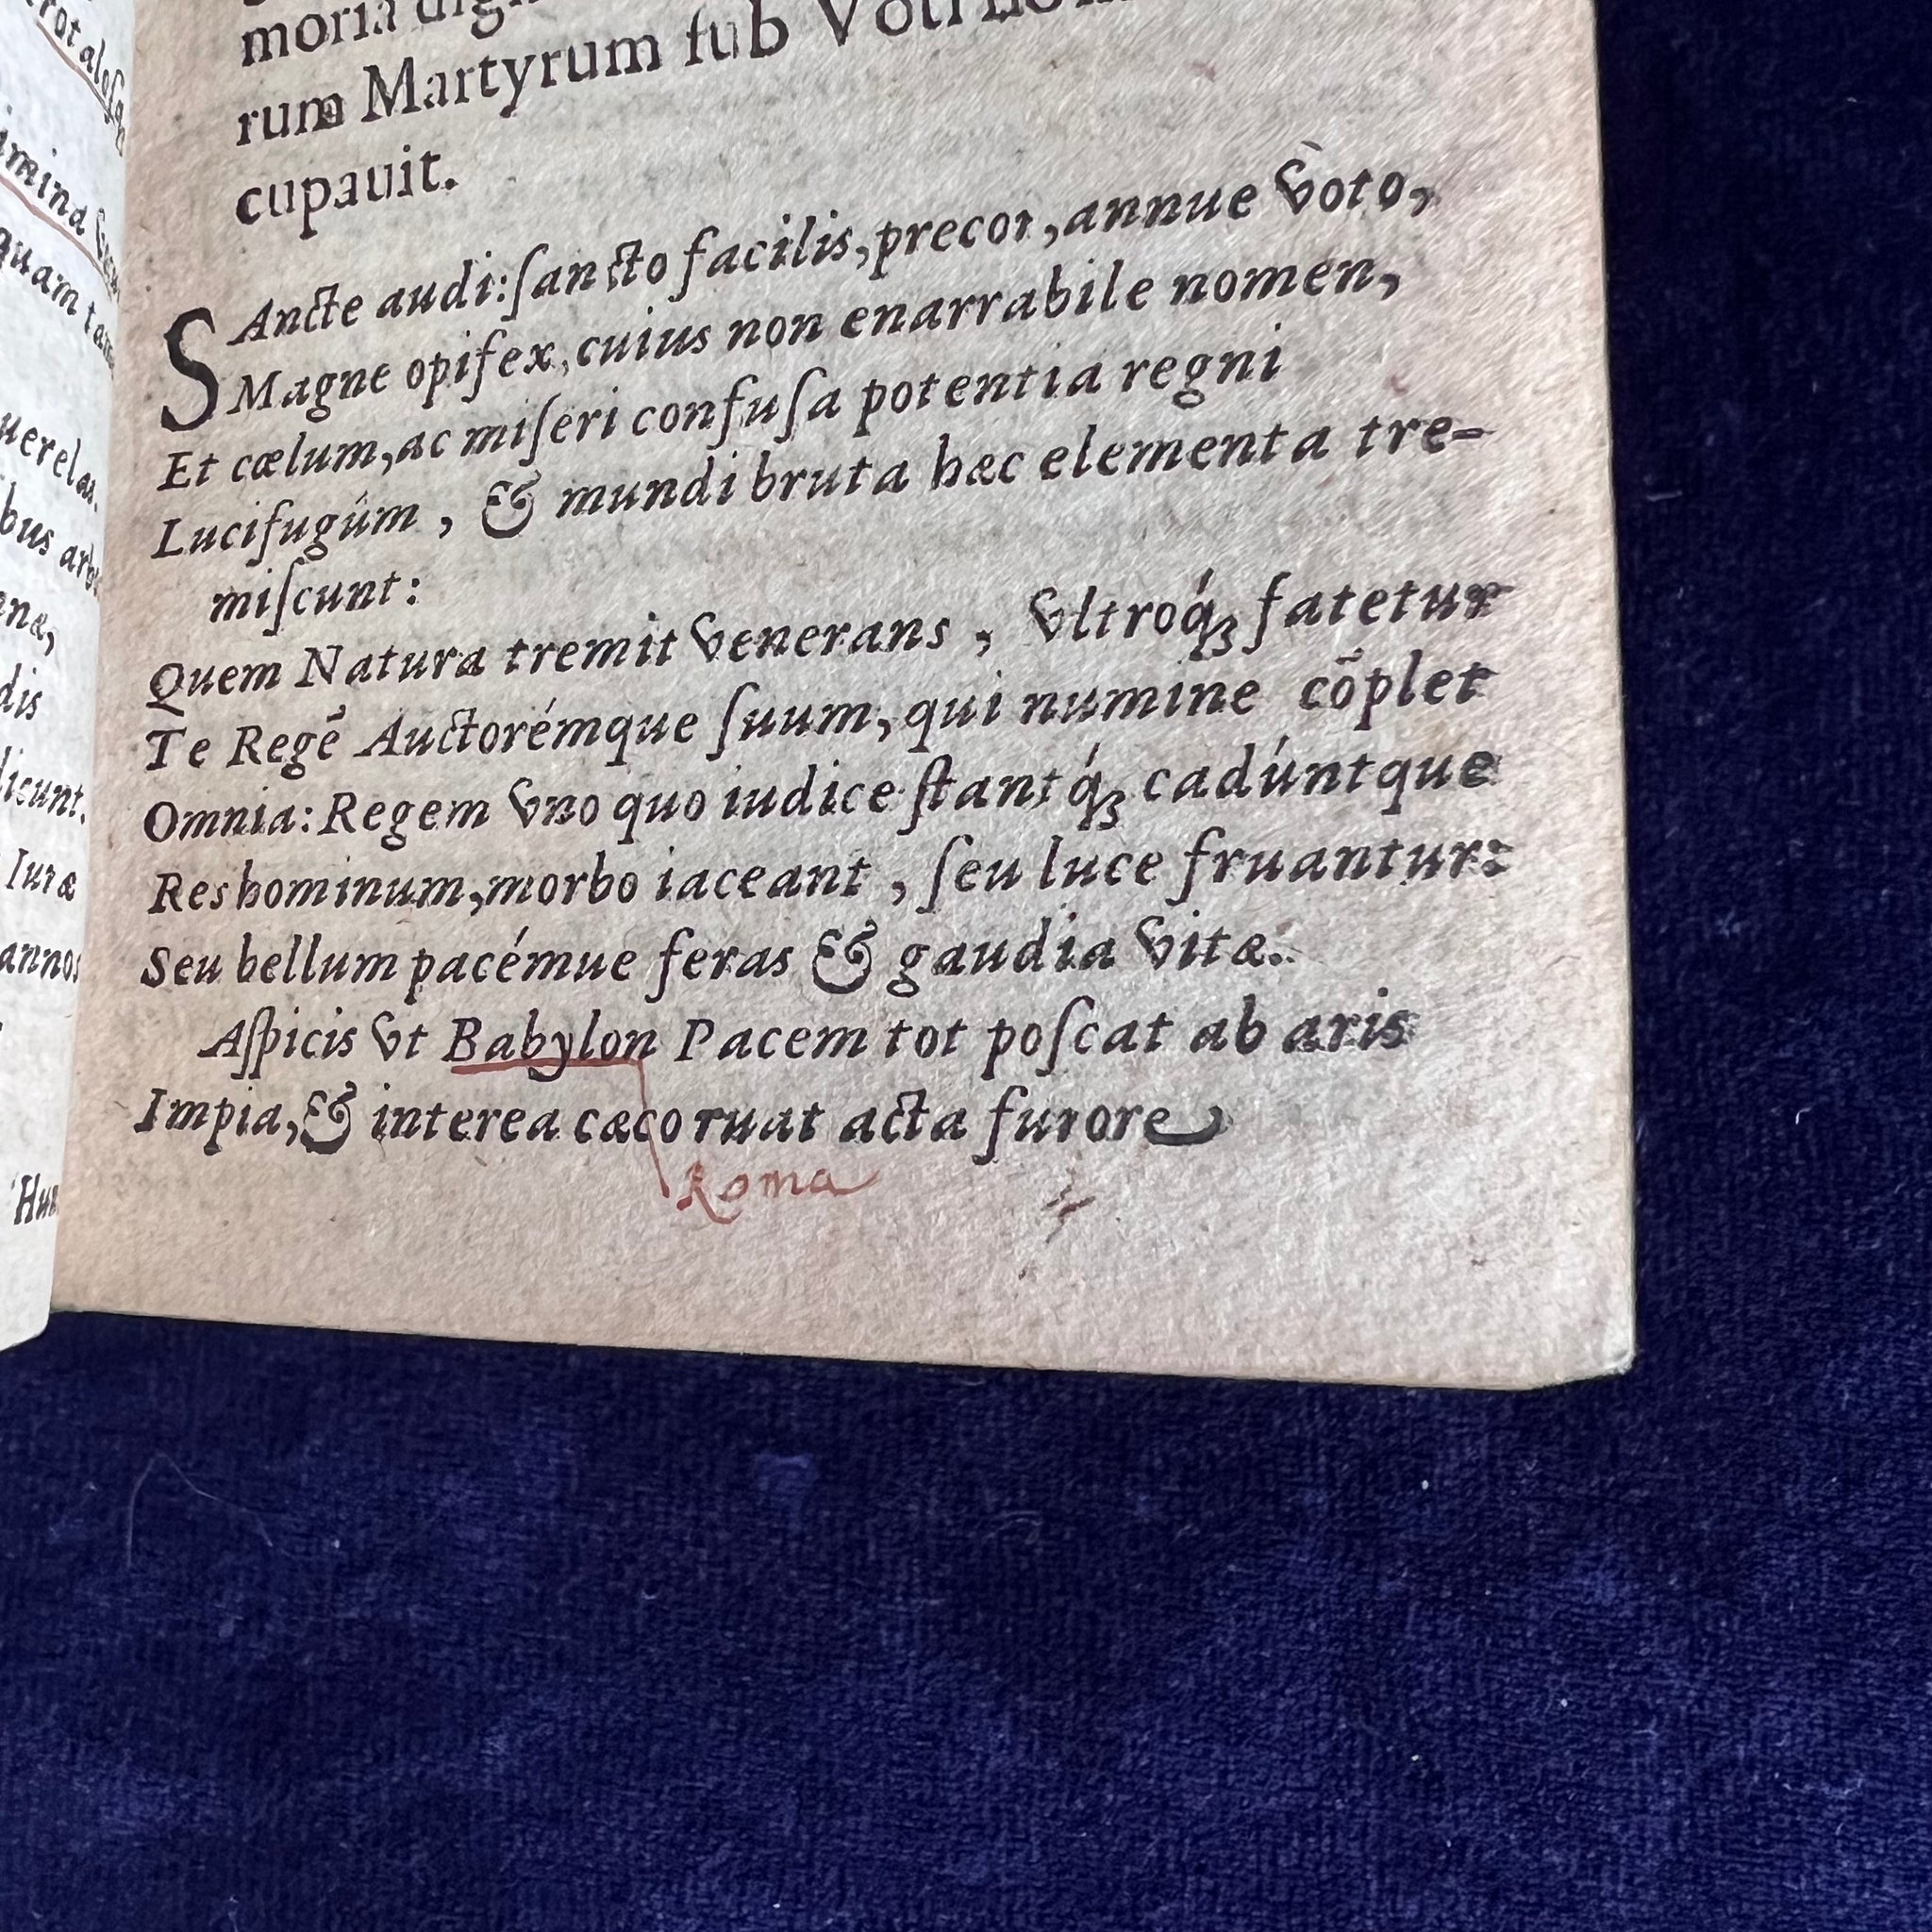 moria
rum Martyrum ſub
cupauit.
SAncte audi: ſancto facilis, precor, annue voto,
Magne opifex, cuius non enarrabile nomen,
Et cælum, ac miſeri confuſa potentia regni
Lucifugúm, & mundi bruta hæc elementa tre-
miſcunt:
Quem Natura tremit venerans, vltroq́ꝫ fatetur
Te Regē Auctorémque ſuum, qui numine cōplet
Omnia: Regem vno quo iudice ſtantq́ꝫ cadúntque
Res hominum, morbo iaceant, ſeu luce fruantur:
Seu bellum pacémue feras & gaudia vitæ.
Aſpicis vt Babylon Pacem tot poſcat ab aris
Impia, & interea cæco ruat acta furore
Roma
imina
quam
uerelas.
bus
dis
Iuræ
annos